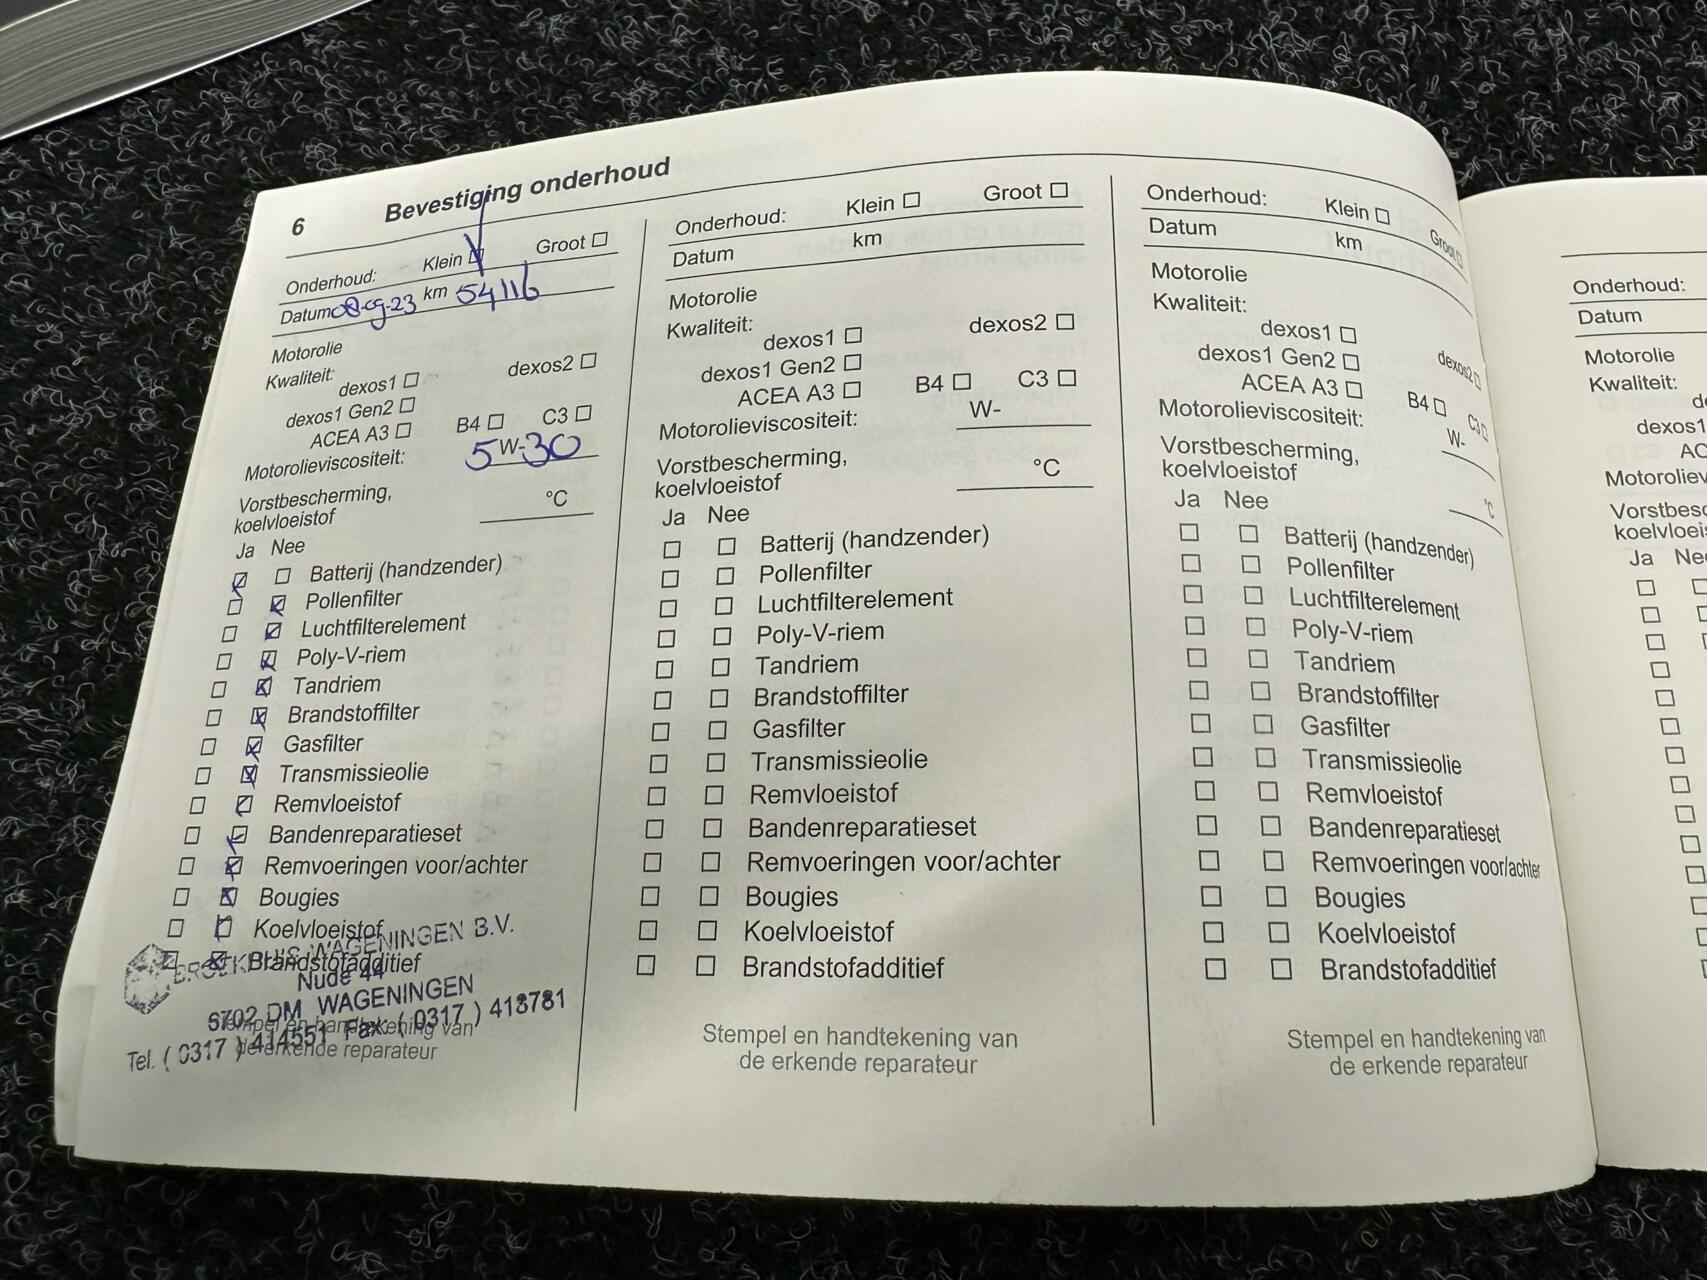 6 Bevestiging onderhoud
Onderhoud: Klein Groot
Datum 08-09-23 km 54116
Motorolie
Kwaliteit:
dexos1 dexos2
dexos1 Gen2
ACEA A3 B4 C3
Motorolieviscositeit: 5W-30
Vorstbescherming,
koelvloeistof °C
Ja Nee
Batterij (handzender)
Pollenfilter
Luchtfilterelement
Poly-V-riem
Tandriem
Brandstoffilter
Gasfilter
Transmissieolie
Remvloeistof
Bandenreparatieset
Remvoeringen voor/achter
Bougies
Koelvloeistof
Brandstofadditief
BROEKHUIS WAGENINGEN B.V.
Nude 44
6702 DM WAGENINGEN
Tel. ( 0317 ) 414551 Fax: ( 0317 ) 418781
Stempel en handtekening van
de erkende reparateur
Onderhoud: Klein Groot
Datum km
Motorolie
Kwaliteit:
dexos1 dexos2
dexos1 Gen2
ACEA A3 B4 C3
Motorolieviscositeit: W-
Vorstbescherming,
koelvloeistof °C
Ja Nee
Batterij (handzender)
Pollenfilter
Luchtfilterelement
Poly-V-riem
Tandriem
Brandstoffilter
Gasfilter
Transmissieolie
Remvloeistof
Bandenreparatieset
Remvoeringen voor/achter
Bougies
Koelvloeistof
Brandstofadditief
Stempel en handtekening van
de erkende reparateur
Onderhoud: Klein Groot
Datum km
Motorolie
Kwaliteit:
dexos1 dexos2
dexos1 Gen2
ACEA A3 B4 C3
Motorolieviscositeit: W-
Vorstbescherming,
koelvloeistof °C
Ja Nee
Batterij (handzender)
Pollenfilter
Luchtfilterelement
Poly-V-riem
Tandriem
Brandstoffilter
Gasfilter
Transmissieolie
Remvloeistof
Bandenreparatieset
Remvoeringen voor/achter
Bougies
Koelvloeistof
Brandstofadditief
Stempel en handtekening van
de erkende reparateur
Onderhoud:
Datum
Motorolie
Kwaliteit:
dexos1
AC
Motoroliev
Vorstbesc
koelvloeis
Ja Nee